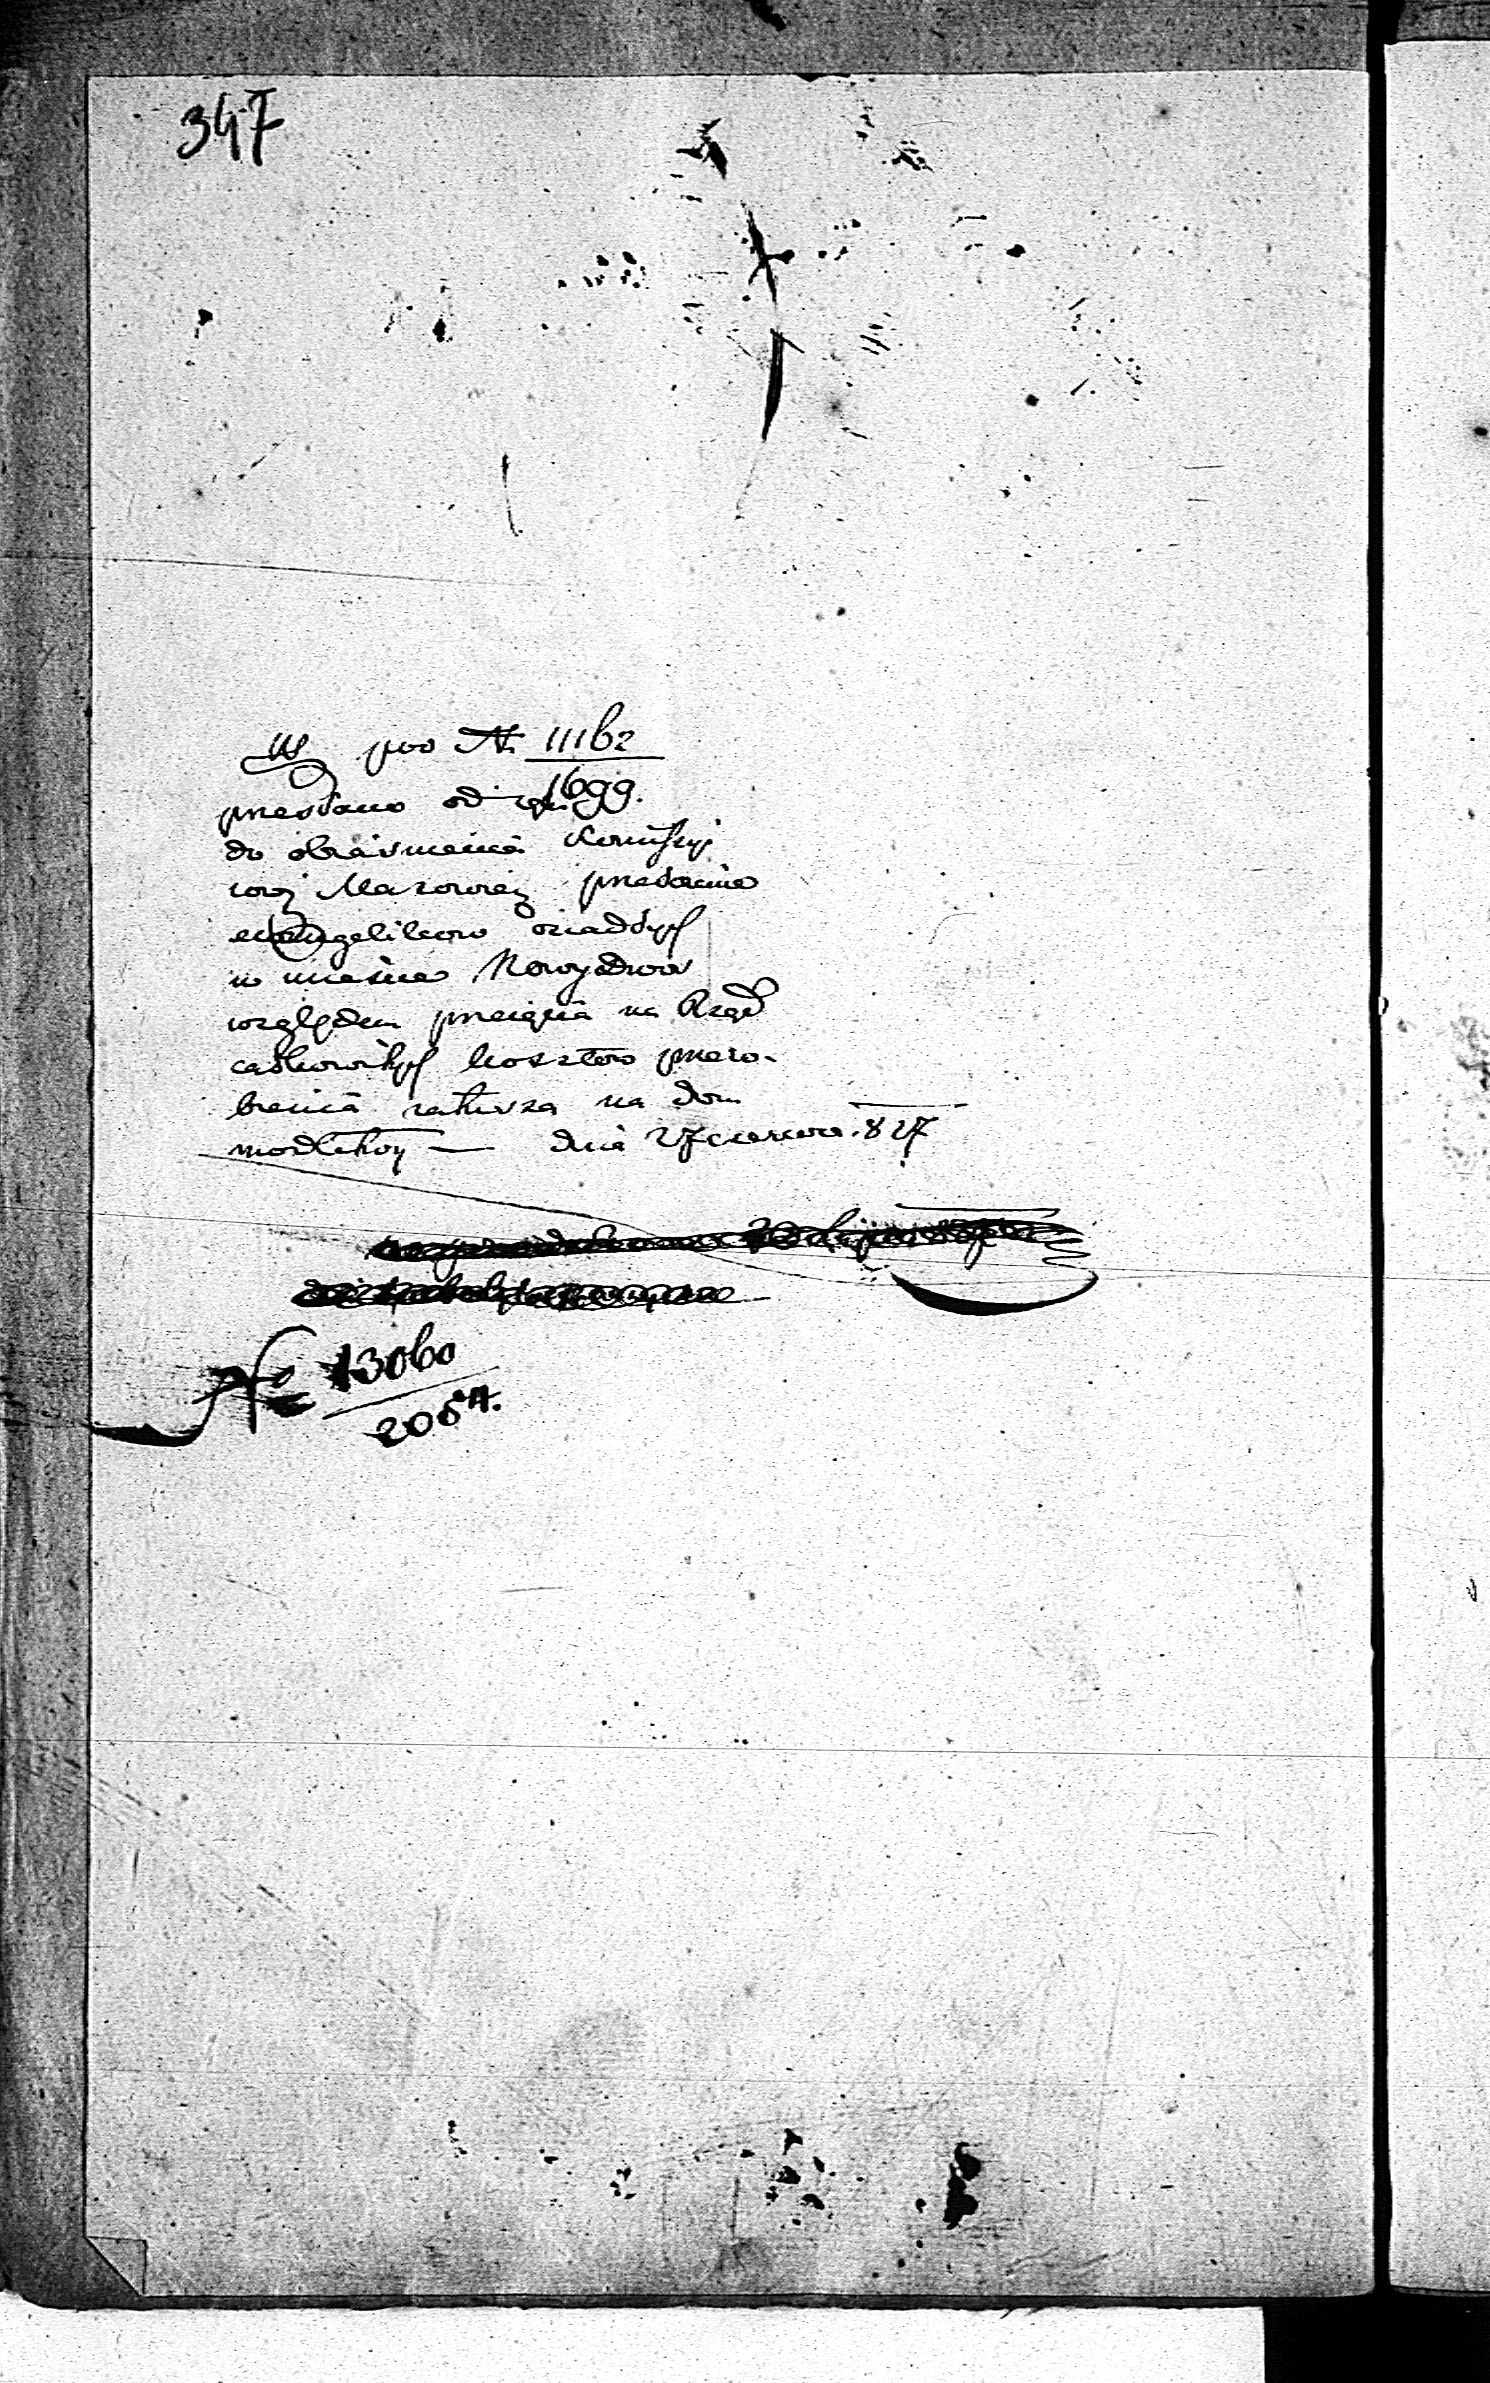 347
W pod N 11162
1699.
przesłano od
do obiaśnienia Kommissyi
woj Mazowiec przedstawienie
ewangelików osiadłych
w mieście Nowydwor
względem przeięcia na Rząd
całkowitych kosztow przero-
bienia ratusza na dom
modlitwy — dnia 27 czerwca 827
No 13060
2054.